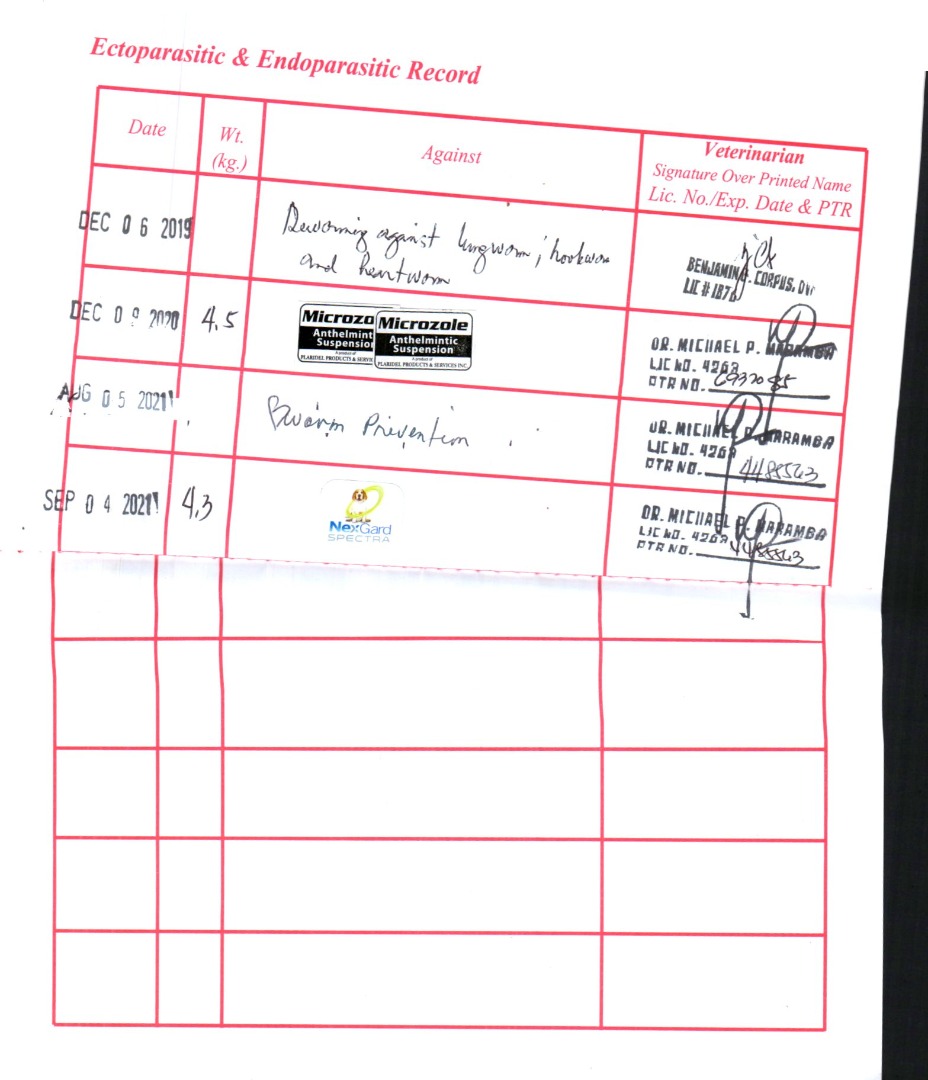 Ectoparasitic & Endoparasitic Record
Date
Wt.
(kg.)
Against
Veterinarian
Signature Over Printed Name
Lic. No./Exp. Date & PTR
DEC 06 2019
Deworming against lungworm; hookworm
and heartworm
BENJAMIN CORPUS, DVM
LIC # 1876
DEC 09 2020
4.5
Microzo
Anthelmint
Suspension
A product of
PLARIDEL PRODUCTS & SERVI
Microzole
Anthelmintic
Suspension
A product of
PLARIDEL PRODUCTS & SERVICES INC.
DR. MICHAEL P. MARAMBA
LIC NO. 4268
PTR NO.
AUG 05 2021
Prevention
DR. MICHAEL P. MARAMBA
LIC NO. 4268
PTR NO. 4488563
SEP 04 2021
4.3
NexGard
SPECTRA
DR. MICHAEL P. MARAMBA
LIC NO. 4268
PTR NO. 4488563